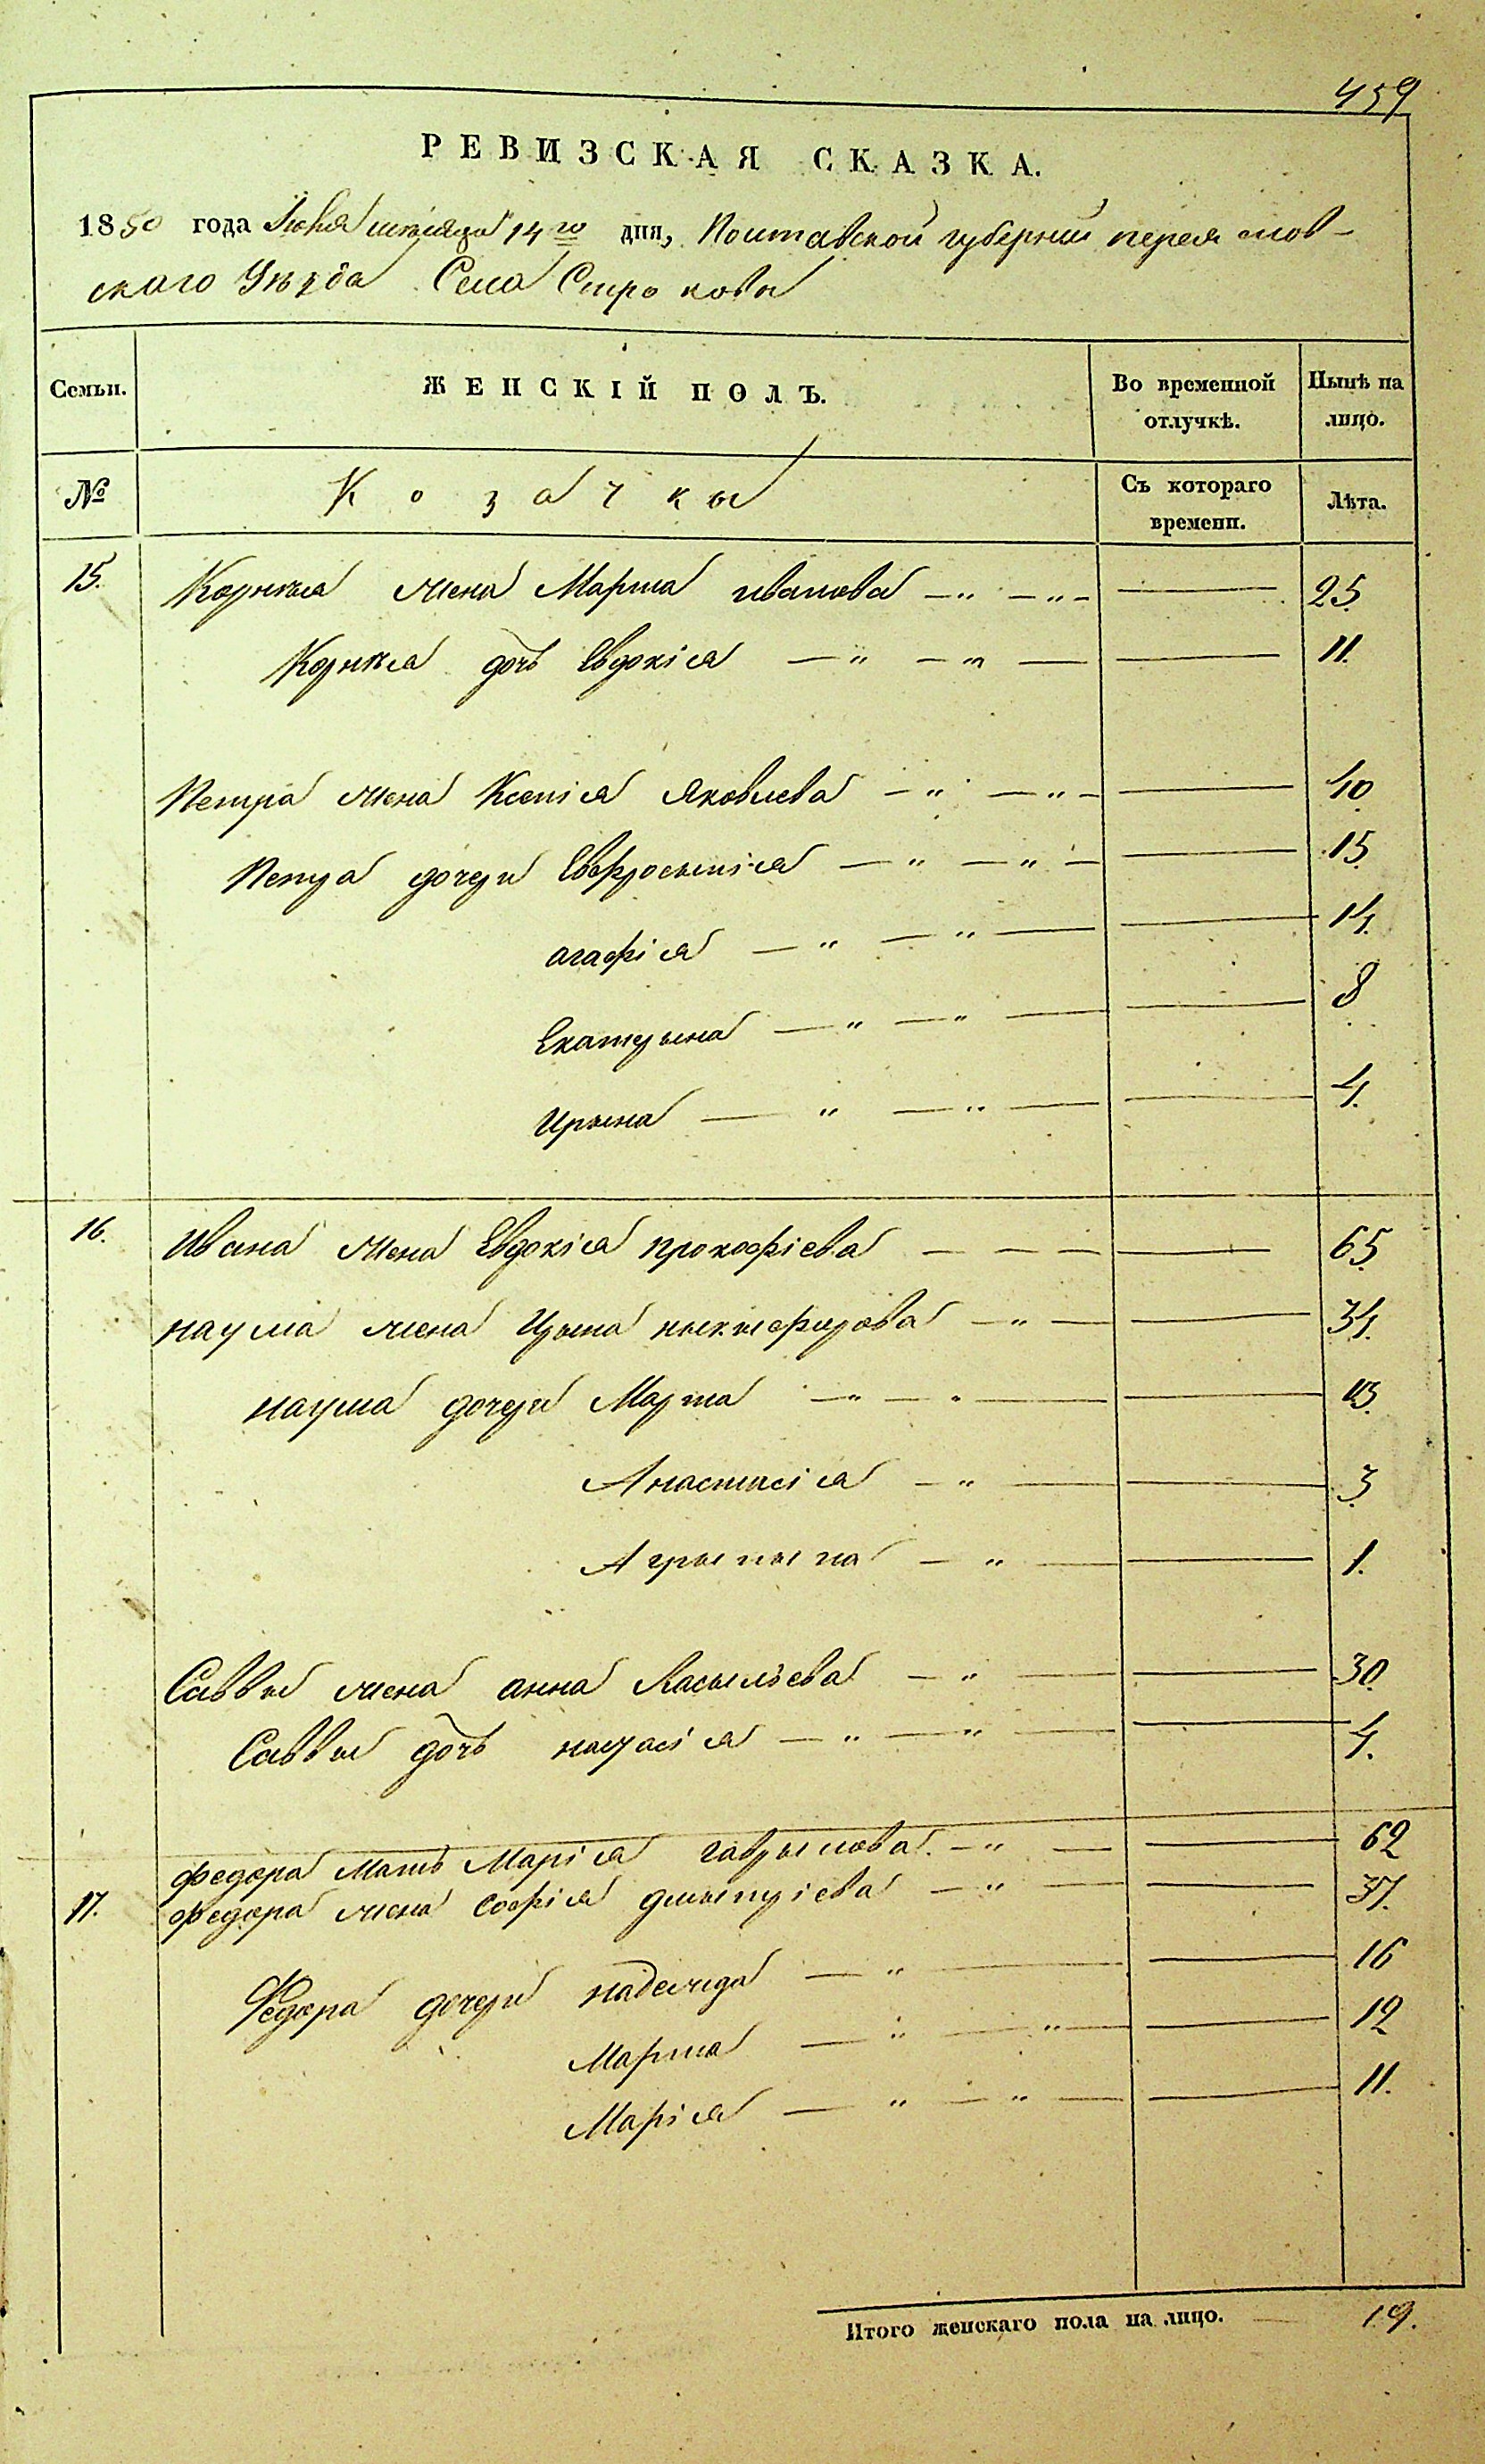 459
РЕВИЗСКАЯ СКАЗКА.
1850 года Июня месяца 14го дня, Полтавской губернии переяслов-
скаго Уезда Села Строковы
Семьи. ЖЕНСКІЙ ПОЛЪ. Во временной отлучкѣ. Нынѣ на лицо.
№ Козачки Съ котораго времени. Лѣта.
15. Корнѣя жена Марѳа иванова —„ —„— 25.
Корнѣя дочь Евдокія —„ —„— 11.
Петра жена Ксенія Яковлева —„ —„— 40
Петра дочери Евфросынія —„ —„— 15
агафія —„ —„— 14.
Екатерына —„ —„— 8
Ирына —„ —„— 4.
16. Ивана жена Евдокія прокофіева — — — 65.
наума жена Ирына ныкыфорова —„— 34.
наума дочери Марѳа —„ —„— 13.
Анастасія —„— 3
Агрыпына —„— 1.
Саввы жена анна Васыліева —„— 30.
Саввы дочь наталія —„ —„— 4.
федора мать Марія гаврылова. —„— 62
17. федора жена софія дмытріева —„— 37.
Федора дочери надежда —„— 16
Марѳа —„ —„— 12
Марія —„ —„— 11.
Итого женскаго пола на лицо. — 19.